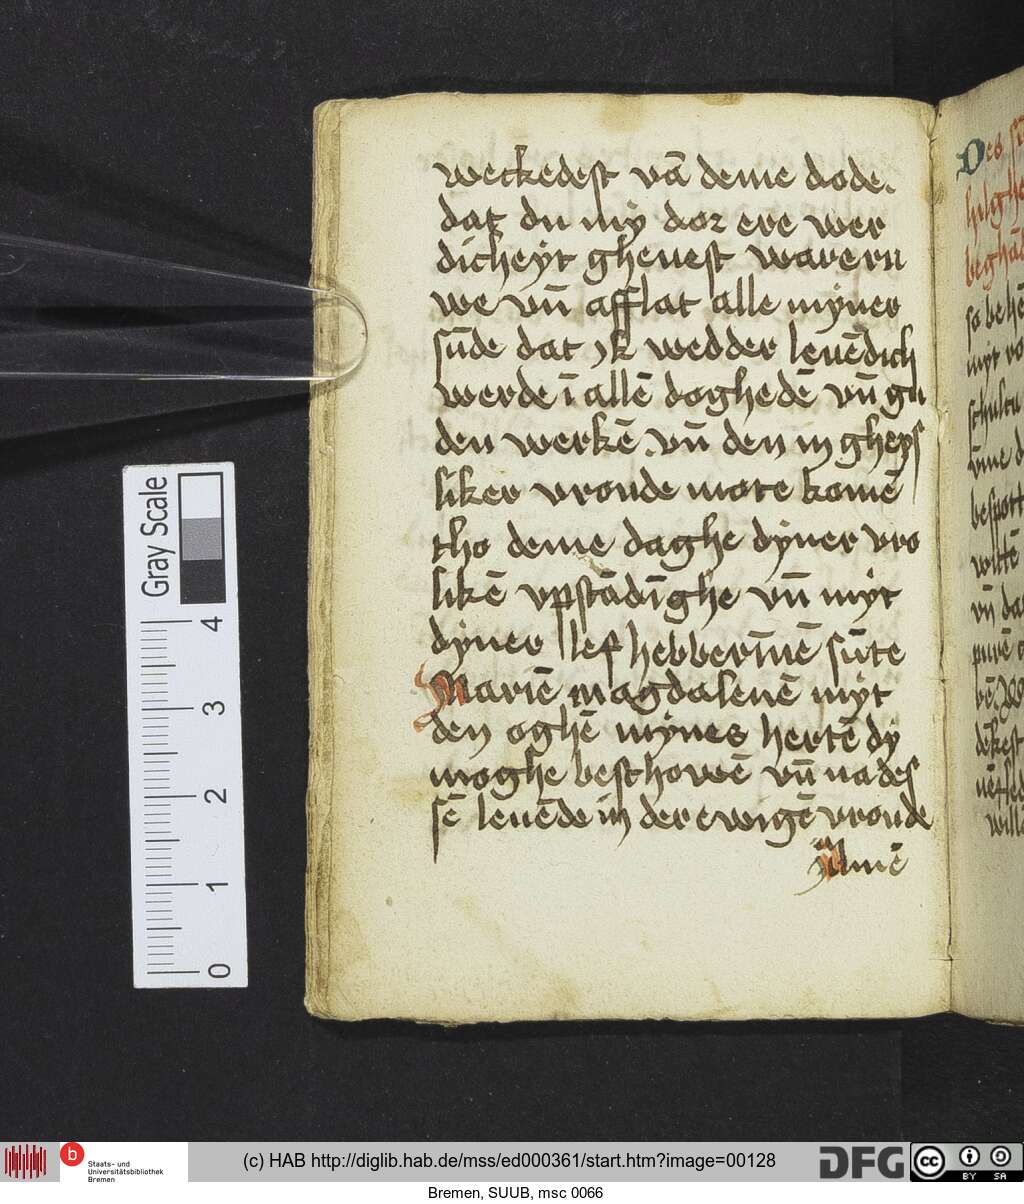 weckedest vā deme dode.
dat du my dor ere wer
dicheyt gheuest waren ru
we vn̄ afflat alle myner
sūde dat yk wedder leuēdich
werde ī allē doghedē vn̄ gu
den werkē . vn̄ den in gheys
liker vroude mote komē
tho deme daghe dyner vro
likē vpstādīghe vn̄ myt
dyner lef hebberīnē sūte
Mariē magdalenē myt
den oghē mynes hertē dy
moghe besthowē vn̄ na des
sē leuēde in der ewigē vroude
Amē
Des
hilghe
so be
myt
schuldu
bespott
wltē
vn̄ da
purē
dēkest
wille
Gray Scale
4
3
2
1
0
b
Staats- und
Universitätsbibliothek
Bremen
(c) HAB http://diglib.hab.de/mss/ed000361/start.htm?image=00128
DFG
cc
BY SA
Bremen, SUUB, msc 0066